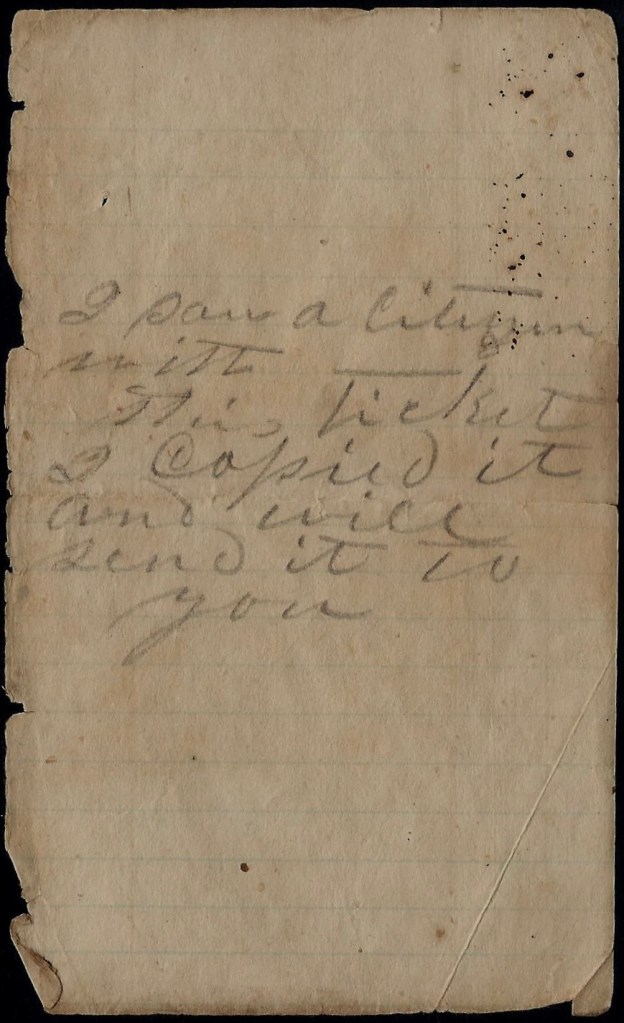 I saw a Citizen
with
this ticket
I Copied it
and will
send it to
you